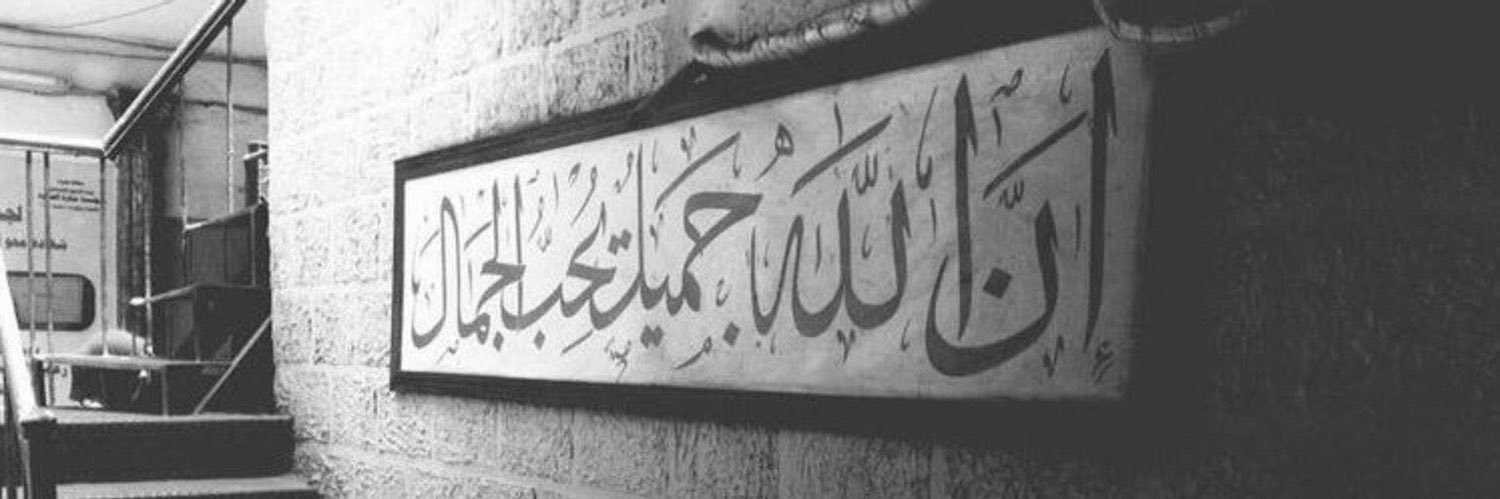 إنَّ اللَّهَ جَمِيلٌ يُحِبُّ الجَمَالَ